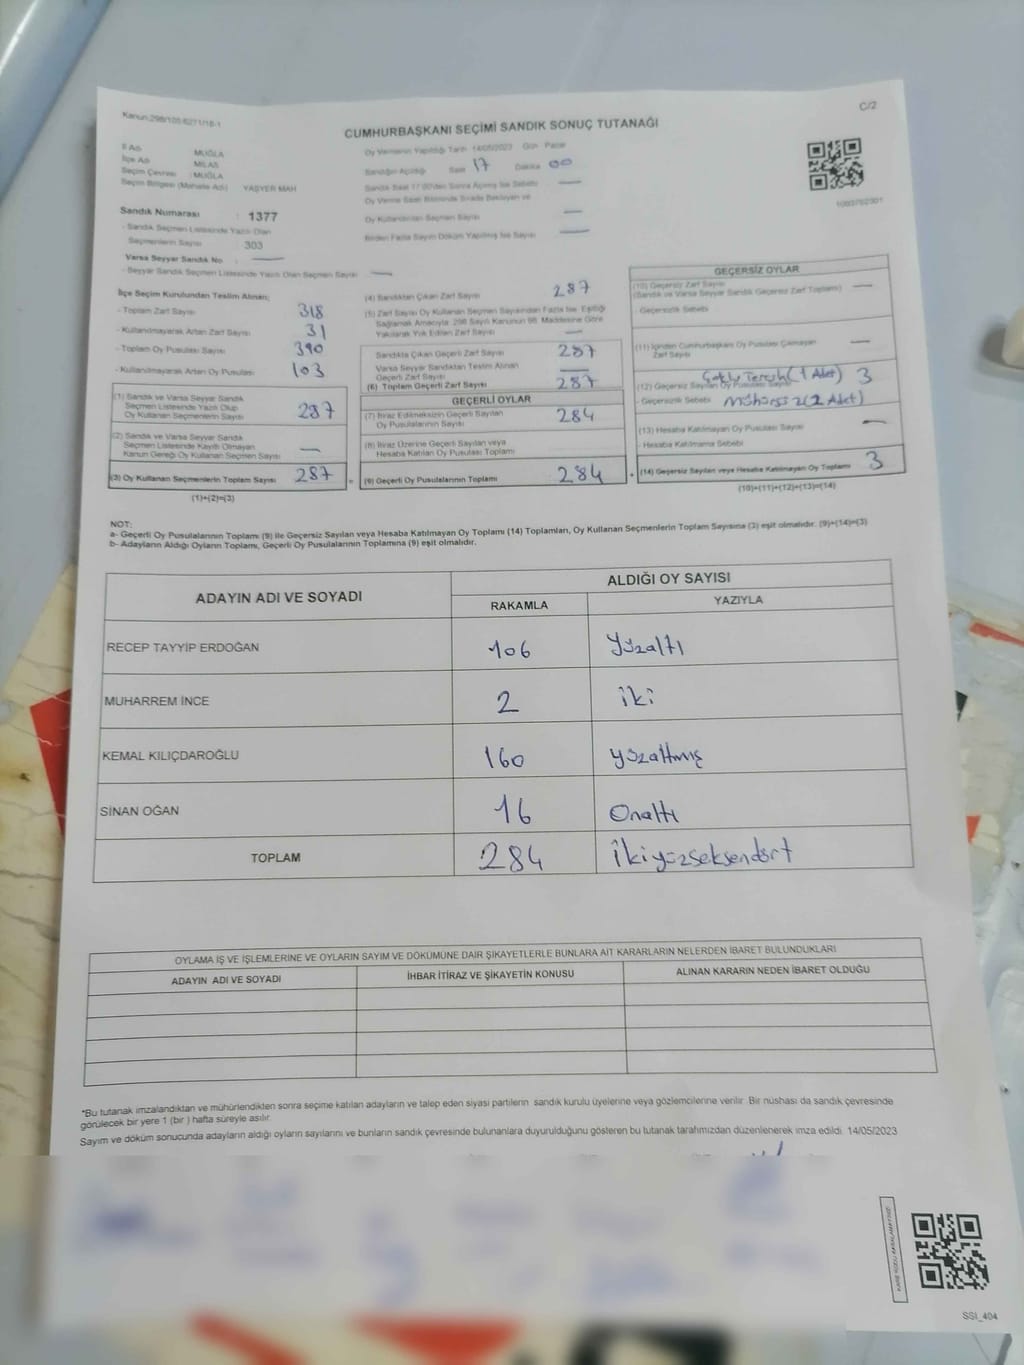 C/2
CUMHURBAŞKANI SEÇİMİ SANDIK SONUÇ TUTANAĞI
İl Adı : MUĞLA
İlçe Adı : MİLAS
Seçim Çevresi : MUĞLA
Seçim Bölgesi (Mahalle Adı) YAŞYER MAH
Sandık Numarası : 1377
- Sandık Seçmen Listesinde Yazılı Olan
Seçmenlerin Sayısı 303
Varsa Seyyar Sandık No —
- Seyyar Sandık Seçmen Listesinde Yazılı Olan Seçmen Sayısı —
Oy Vermenin Yapıldığı Tarih 14/05/2023 Gün Pazar
Sandığın Açıldığı Saat 17 Dakika 00
Sandık Saat 17.00'den Sonra Açılmış İse Sebebi —
Oy Verme Saati Bitiminde Sırada Bekleyen ve
Oy Kullandırılan Seçmen Sayısı —
Birden Fazla Sayım Döküm Yapılmış İse Sayısı —
İlçe Seçim Kurulundan Teslim Alınan;
- Toplam Zarf Sayısı 318
- Kullanılmayarak Artan Zarf Sayısı 31
- Toplam Oy Pusulası Sayısı 390
- Kullanılmayarak Artan Oy Pusulası 103
(1) Sandık ve Varsa Seyyar Sandık
Seçmen Listesinde Yazılı Olup
Oy Kullanan Seçmenlerin Sayısı 287
(2) Sandık ve Varsa Seyyar Sandık
Seçmen Listesinde Kayıtlı Olmayan
Kanun Gereği Oy Kullanan Seçmen Sayısı —
(3) Oy Kullanan Seçmenlerin Toplam Sayısı 287
(1)+(2)=(3)
(4) Sandıktan Çıkan Zarf Sayısı 287
(5) Zarf Sayısı Oy Kullanan Seçmen Sayısından Fazla İse, Eşitliği
Sağlamak Amacıyla, 298 Sayılı Kanunun 98. Maddesine Göre
Yakılarak Yok Edilen Zarf Sayısı —
Sandıkta Çıkan Geçerli Zarf Sayısı 287
Varsa Seyyar Sandıktan Teslim Alınan
Geçerli Zarf Sayısı —
(6) Toplam Geçerli Zarf Sayısı 287
GEÇERLİ OYLAR
(7) İtiraz Edilmeksizin Geçerli Sayılan
Oy Pusulalarının Sayısı 284
(8) İtiraz Üzerine Geçerli Sayılan veya
Hesaba Katılan Oy Pusulası Toplamı —
= (9) Geçerli Oy Pusulalarının Toplamı 284
GEÇERSİZ OYLAR
(10) Geçersiz Zarf Sayısı —
(Sandık ve Varsa Seyyar Sandık Geçersiz Zarf Toplamı)
- Geçersizlik Sebebi
(11) İçinden Cumhurbaşkanı Oy Pusulası Çıkmayan
Zarf Sayısı —
(12) Geçersiz Sayılan Oy Pusulası Sayısı Çoklu Tercih (1 Adet) 3
- Geçersizlik Sebebi Mühürsüz (2 Adet)
(13) Hesaba Katılmayan Oy Pusulası Sayısı —
- Hesaba Katılmama Sebebi
+ (14) Geçersiz Sayılan veya Hesaba Katılmayan Oy Toplamı 3
(10)+(11)+(12)+(13)=(14)
NOT:
a- Geçerli Oy Pusulalarının Toplamı (9) ile Geçersiz Sayılan veya Hesaba Katılmayan Oy Toplamı (14) Toplamları, Oy Kullanan Seçmenlerin Toplam Sayısına (3) eşit olmalıdır. (9)+(14)=(3)
b- Adayların Aldığı Oyların Toplamı, Geçerli Oy Pusulalarının Toplamına (9) eşit olmalıdır.
ADAYIN ADI VE SOYADI
ALDIĞI OY SAYISI
RAKAMLA YAZIYLA
RECEP TAYYİP ERDOĞAN 106 Yüzaltı
MUHARREM İNCE 2 iki
KEMAL KILIÇDAROĞLU 160 yüzaltmış
SİNAN OĞAN 16 Onaltı
TOPLAM 284 İkiyüzseksendört
OYLAMA İŞ VE İŞLEMLERİNE VE OYLARIN SAYIM VE DÖKÜMÜNE DAİR ŞİKAYETLERLE BUNLARA AİT KARARLARIN NELERDEN İBARET BULUNDUKLARI
ADAYIN ADI VE SOYADI İHBAR İTİRAZ VE ŞİKAYETİN KONUSU ALINAN KARARIN NEDEN İBARET OLDUĞU
*Bu tutanak imzalandıktan ve mühürlendikten sonra seçime katılan adayların ve talep eden siyasi partilerin sandık kurulu üyelerine veya gözlemcilerine verilir. Bir nüshası da sandık çevresinde
görülecek bir yere 1 (bir ) hafta süreyle asılır.
Sayım ve döküm sonucunda adayların aldığı oyların sayılarını ve bunların sandık çevresinde bulunanlara duyurulduğunu gösteren bu tutanak tarafımızdan düzenlenerek imza edildi. 14/05/2023
SSI_404